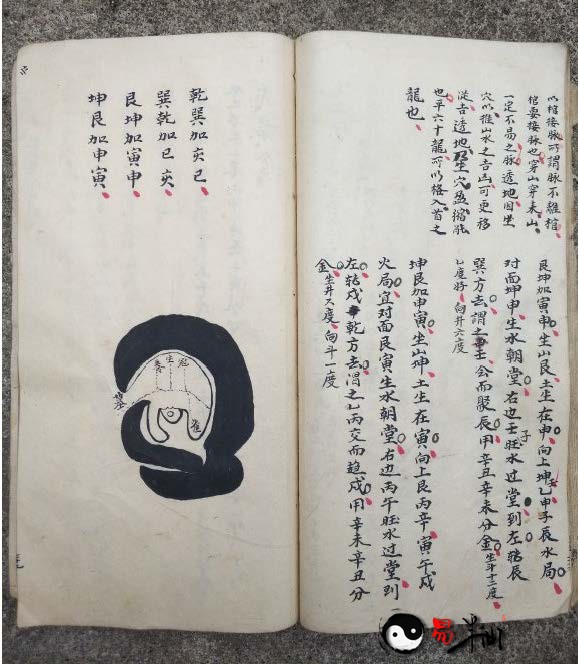 以棺接脉所謂脉不離棺
棺要接脉也穿山穿来山
一定不易之脉透地因坐
穴以推山水之吉凶可更移
從吉透地乃坐穴盈縮融
也平六十龍所以格入首之
龍也
艮坤加寅申坐山艮土生在申向上坤乙申子辰水局
对面坤申生水朝堂右边壬子旺水过堂到左转辰
巽方去謂之辛壬会而聚辰用辛丑辛未分金坐斗十二度
七度好向井六度
坤艮加申寅坐山坤土生在寅向上艮丙辛寅午戌
火局宜对面艮寅生水朝堂右边丙午旺水过堂到
左转戌乾方去谓之乙丙交而趋戌用辛未辛丑分
金坐井六度向斗一度
乾巽加亥巳
巽乾加巳亥
艮坤加寅申
坤艮加申寅
冠
生
養
易半仙